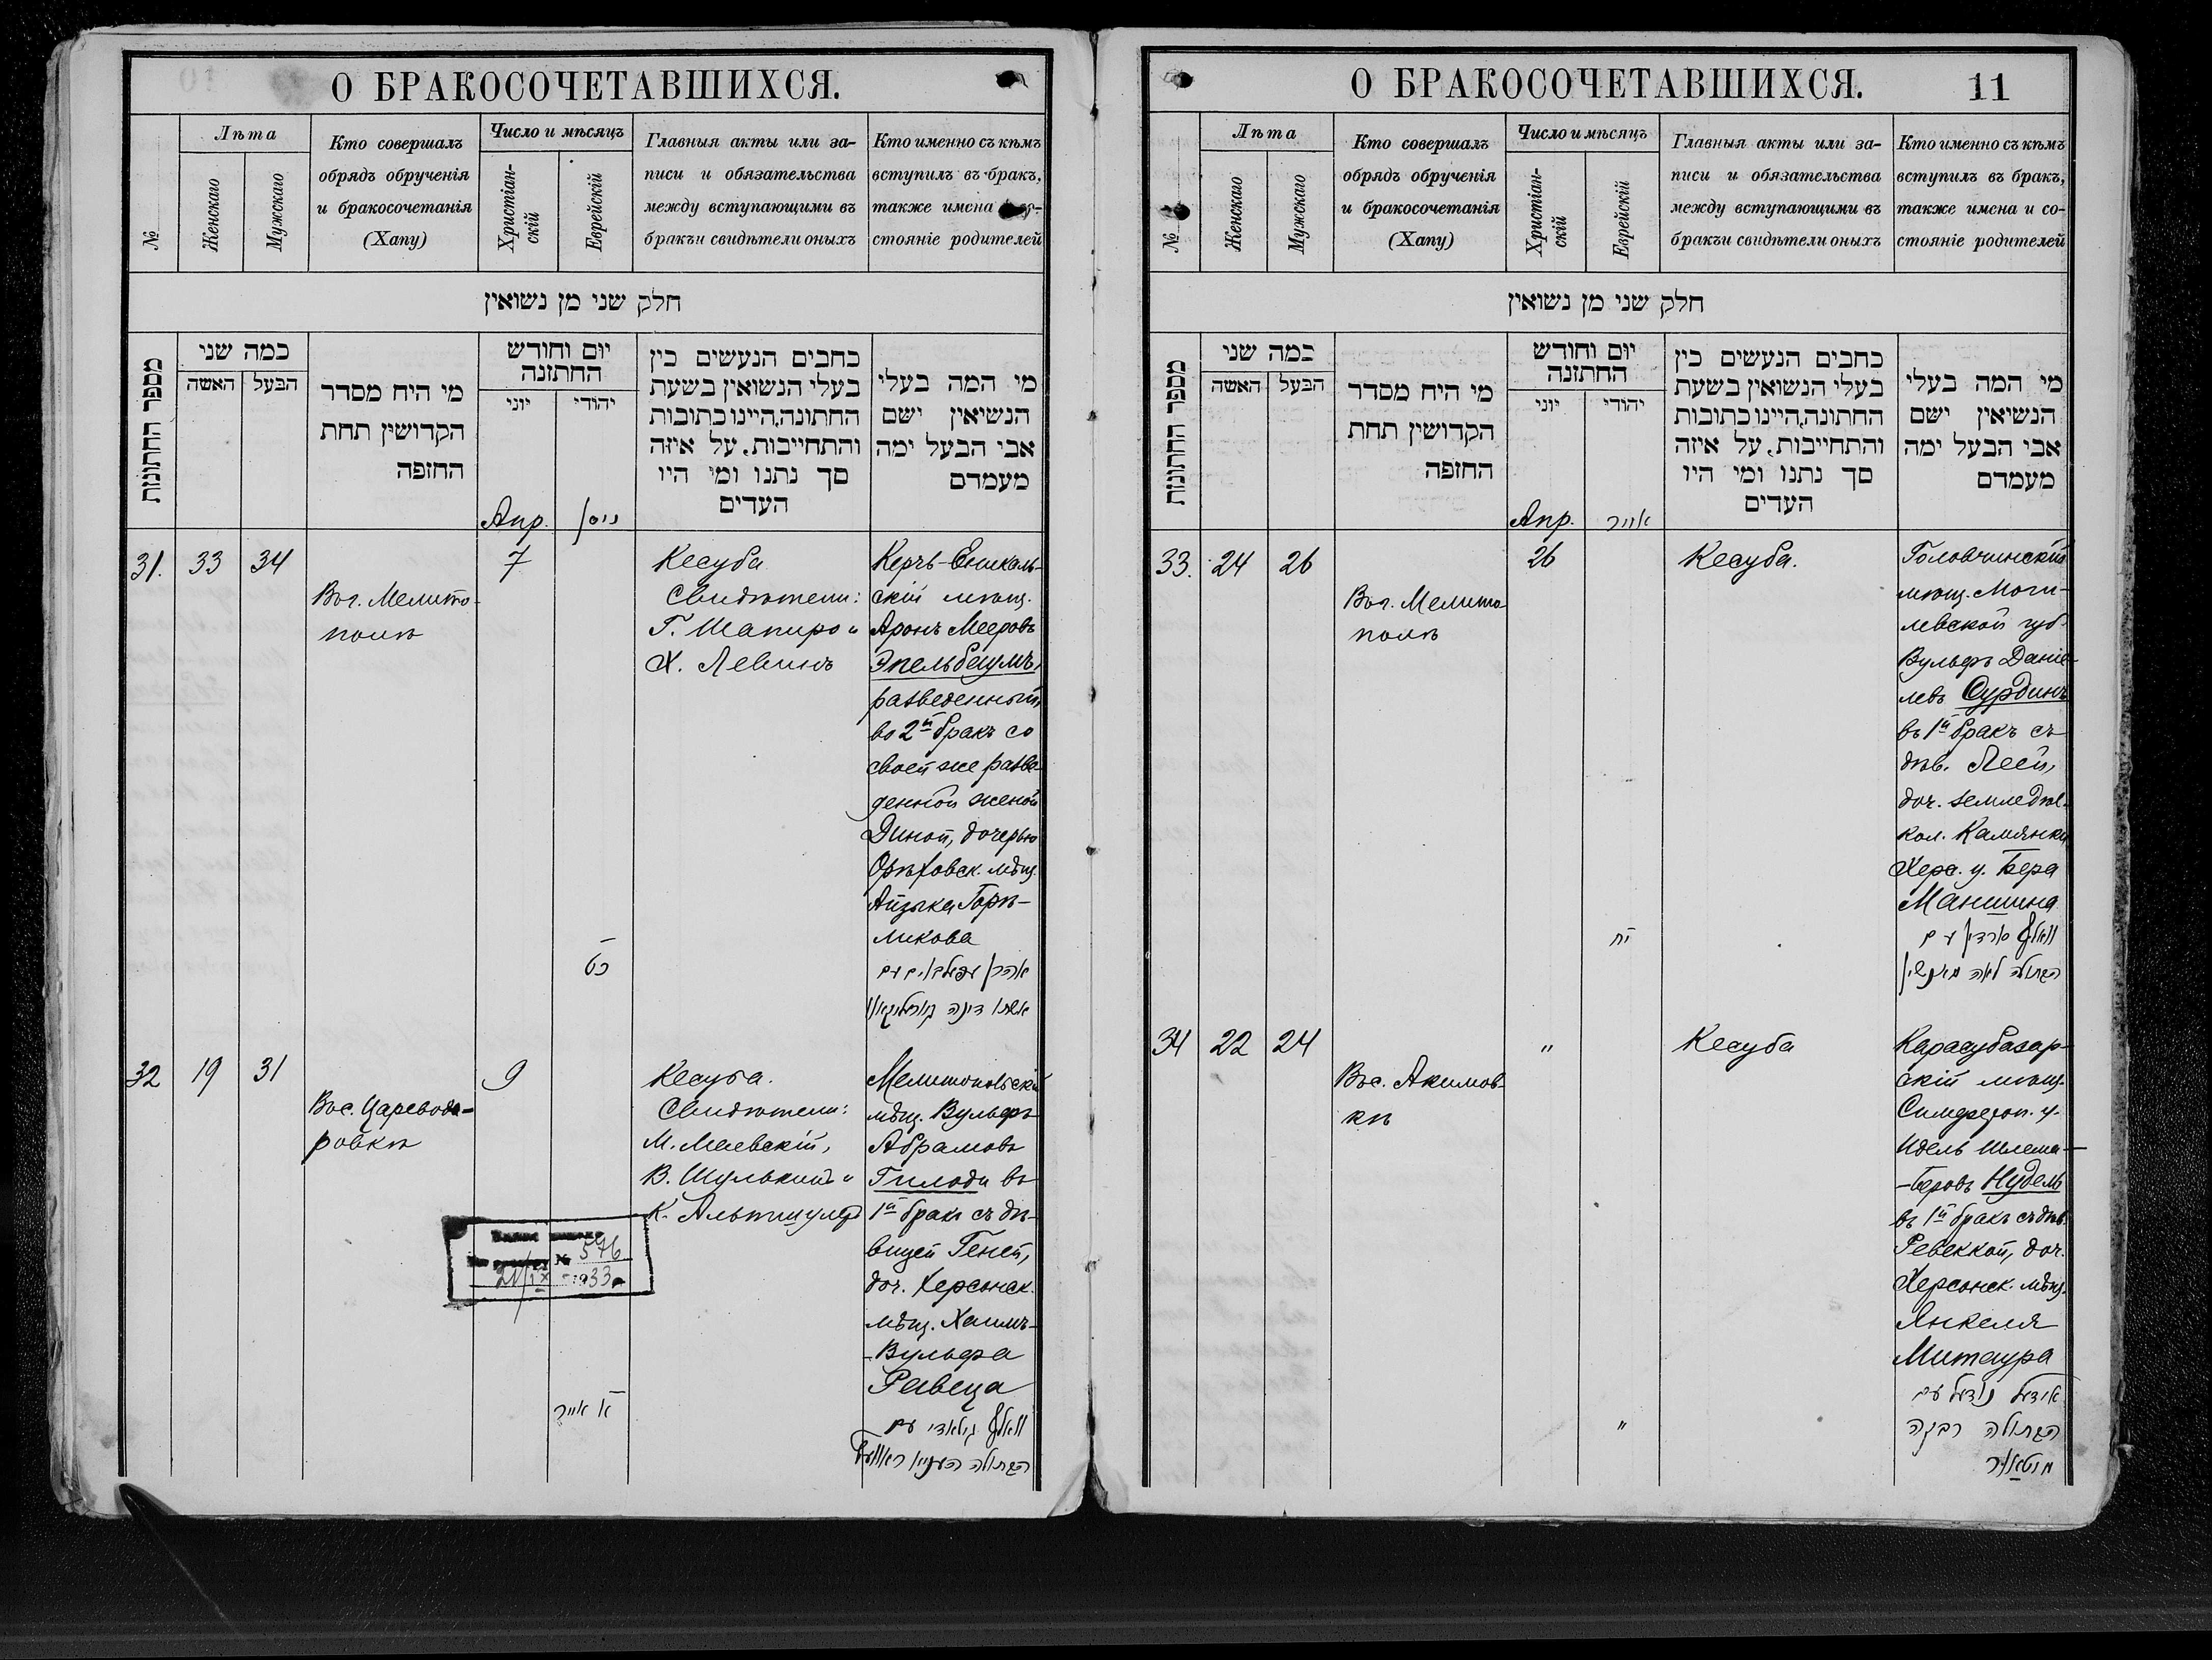 О БРАКОСОЧЕТАВШИХСЯ.
№
Лѣта
Женскаго
Мужскаго
Кто совершалъ
обрядъ обрученія
и бракосочетанія
(Хапу)
Число и мѣсяцъ
Христіан-
скій
Еврейскій
Главныя акты или за-
писи и обязательства
между вступающими въ
бракъ и свидѣтели оныхъ
Кто именно съ кѣмъ
вступилъ въ бракъ,
также имена
стояніе родителей
חלק שני מן נשואין
מספר החתונות
כמה שני
האשה
הבעל
מי היח מסדר
הקדושין תחת
החופה
יום וחודש
החתונה
יוני
יהודי
כתבים הנעשים בין
בעלי הנשואין בשעת
החתונה, היינו כתובות
והתחייבות, על איזה
סך נתנו ומי היו
העדים
מי המה בעלי
הנשיאין ישם
אבי הבעל ימה
מעמדם
Апр.
ניסן
31.
33
34
Въ г. Мелито-
полѣ
7
כט
Кесуба
Свидѣтели:
Г. Шапиро и
Х. Левинъ
Керчь-Еникаль-
скій мѣщ.
Аронъ Мееровъ
Эпельбеумъ,
разведенный,
во 2й бракъ со
своей же разве-
денной женой
Диной, дочерью
Орѣховск. мѣщ.
Айзыка Горѣ-
ликова
אהרן עפעלבוים עם
אשתו דינה גארעליקאוו
32
19
31
Въ с. Царевода-
ровкѣ
9
א אייר
Кесуба.
Свидѣтели:
М. Маевскій,
В. Шулькинъ и
К. Альтшулеръ
Мелитопольскій
мѣщ. Вульфъ
Абрамовъ
Гилоди въ
1й бракъ съ дѣ-
вицей Геней,
доч. Херсонск.
мѣщ. Хаимъ-
-Вульфа
Равеца
וואלף גילאדי עם
הבתולה
№ 596
21/IX 1933
О БРАКОСОЧЕТАВШИХСЯ.
11
№
Лѣта
Женскаго
Мужскаго
Кто совершалъ
обрядъ обрученія
и бракосочетанія
(Хапу)
Число и мѣсяцъ
Христіан-
скій
Еврейскій
Главныя акты или за-
писи и обязательства
между вступающими въ
бракъ и свидѣтели оныхъ
Кто именно съ кѣмъ
вступилъ въ бракъ,
также имена и со-
стояніе родителей
חלק שני מן נשואין
מספר החתונות
כמה שני
האשה
הבעל
מי היח מסדר
הקדושין תחת
החופה
יום וחודש
החתונה
יוני
יהודי
כתבים הנעשים בין
בעלי הנשואין בשעת
החתונה, היינו כתובות
והתחייבות, על איזה
סך נתנו ומי היו
העדים
מי המה בעלי
הנשיאין ישם
אבי הבעל ימה
מעמדם
Апр.
אייר
33.
24
26
Въ г. Мелито-
полѣ
26
יח
Кесуба.
Головчинскій
мѣщ. Моги-
левской губ.
Вульфъ Даніе-
левъ Сурдинъ
въ 1й бракъ съ
дѣв. Леей,
доч. земледѣл.
кол. Камянки
Херс. у. Бера
Маншина
וואלף סורדין עם
הבתולה לאה מאנשין
34
22
24
Въ с. Акимов-
кѣ
"
"
Кесуба
Карасубазар-
скій мѣщ.
Симфероп. у.
Идель Шлема-
-Беровъ Нудель
въ 1й бракъ съ дѣв.
Ревеккой, доч.
Херсонск. мѣщ.
Янкеля
Митаура
אידעל נודעל עם
הבתולה רבקה
מיטאור